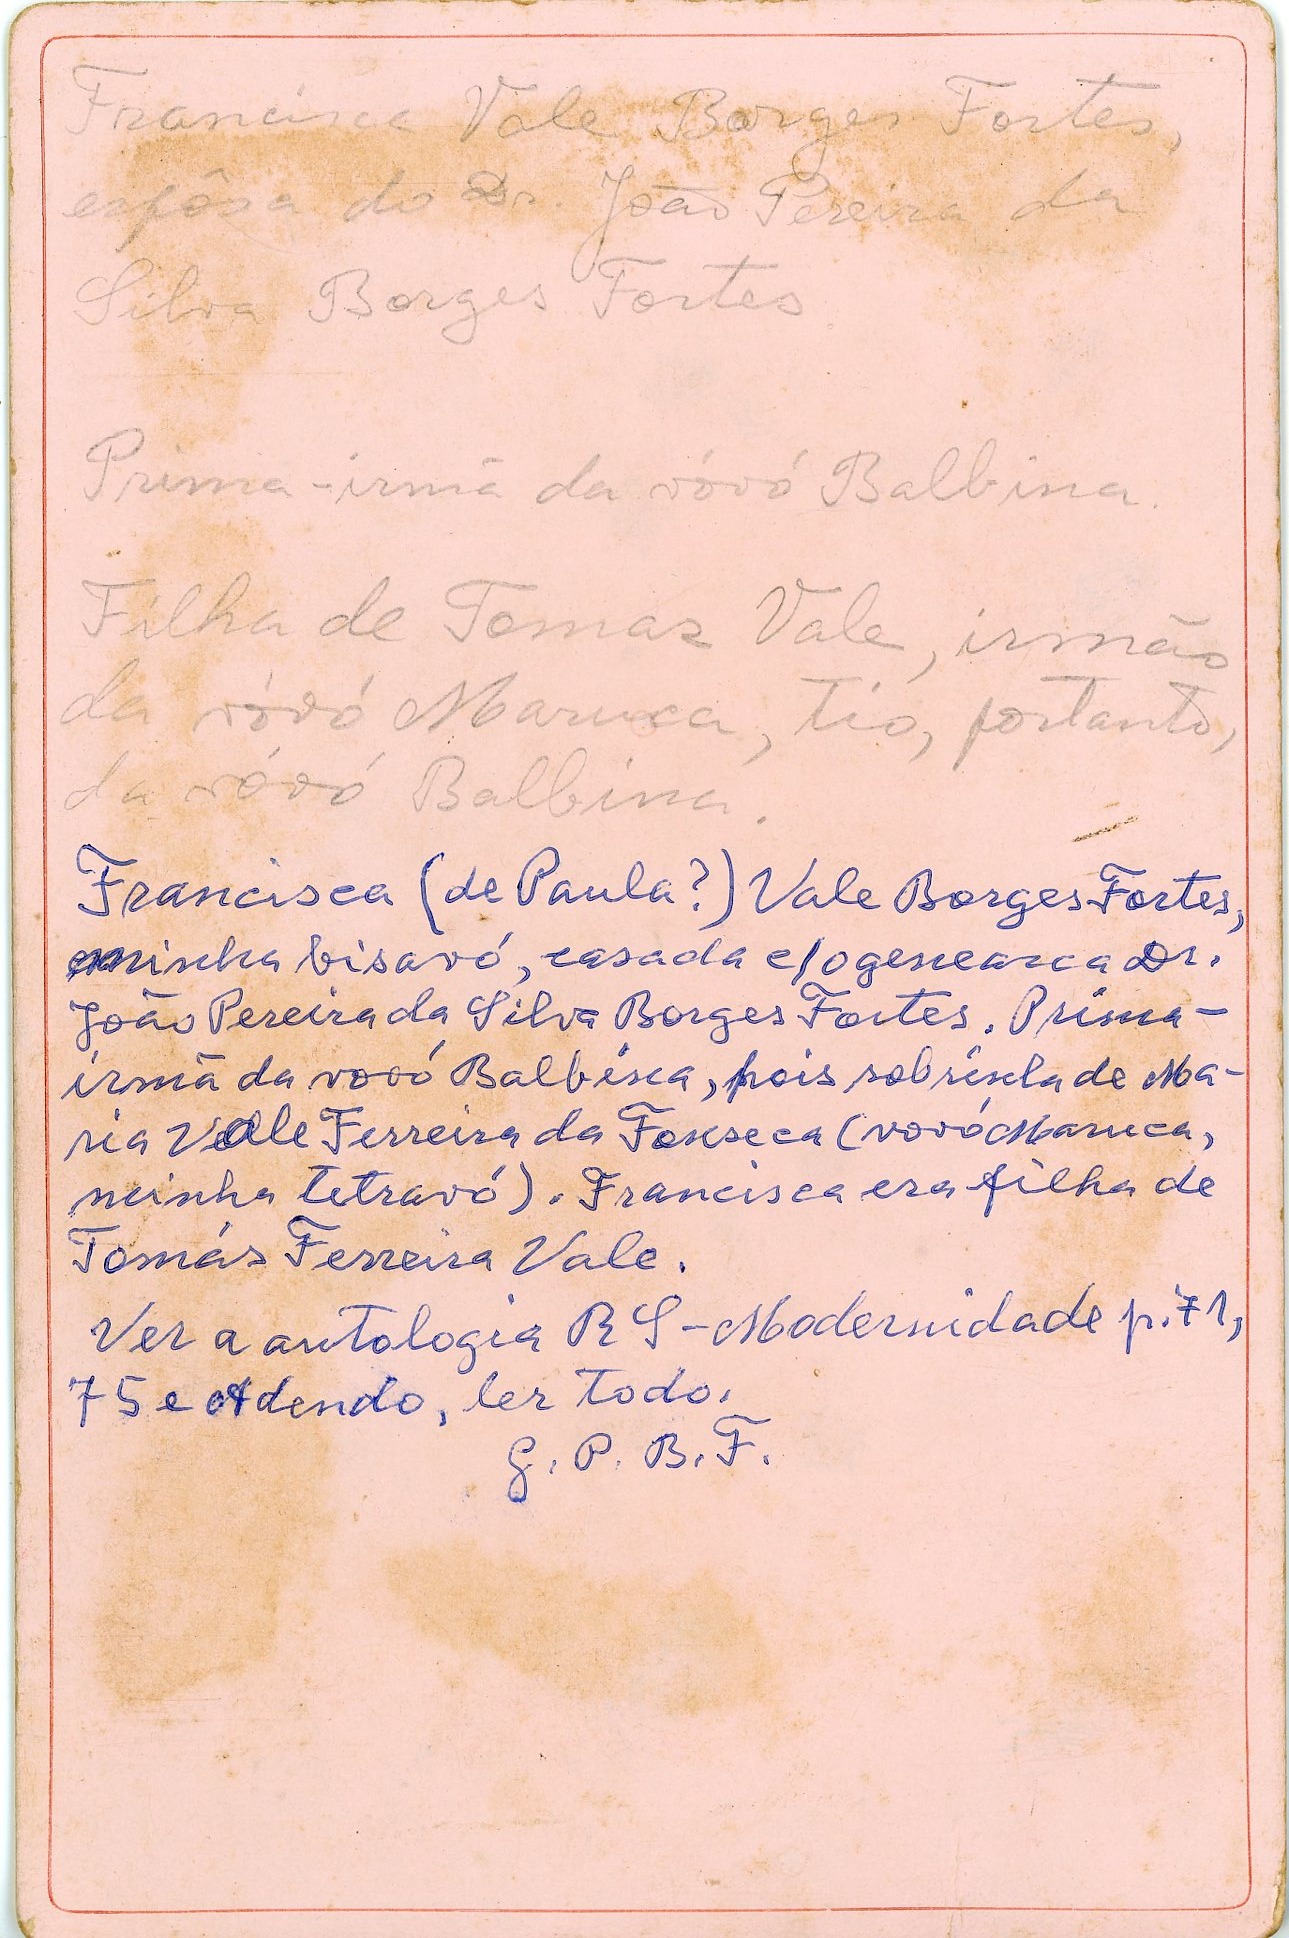 Francisca Vale Borges Fortes,
espôsa do Dr. João Pereira da
Silva Borges Fortes
Prima-irmã da vóvó Balbina.
Filha de Tomaz Vale, irmão
da vóvó Maruca, tio, portanto,
da vóvó Balbina.
Francisca (de Paula?) Vale Borges Fortes,
minha bisavó, casada c/ o genearca Dr.
João Pereira da Silva Borges Fortes. Prima-
irmã da vovó Balbina, pois sobrinha de Ma-
ria Vale Ferreira da Fonseca (vovó Maruca,
minha tetravó). Francisca era filha de
Tomás Ferreira Vale.
Ver a antologia RS-Modernidade p. 71,
75 e Adendo, ler todo.
G. P. B. F.